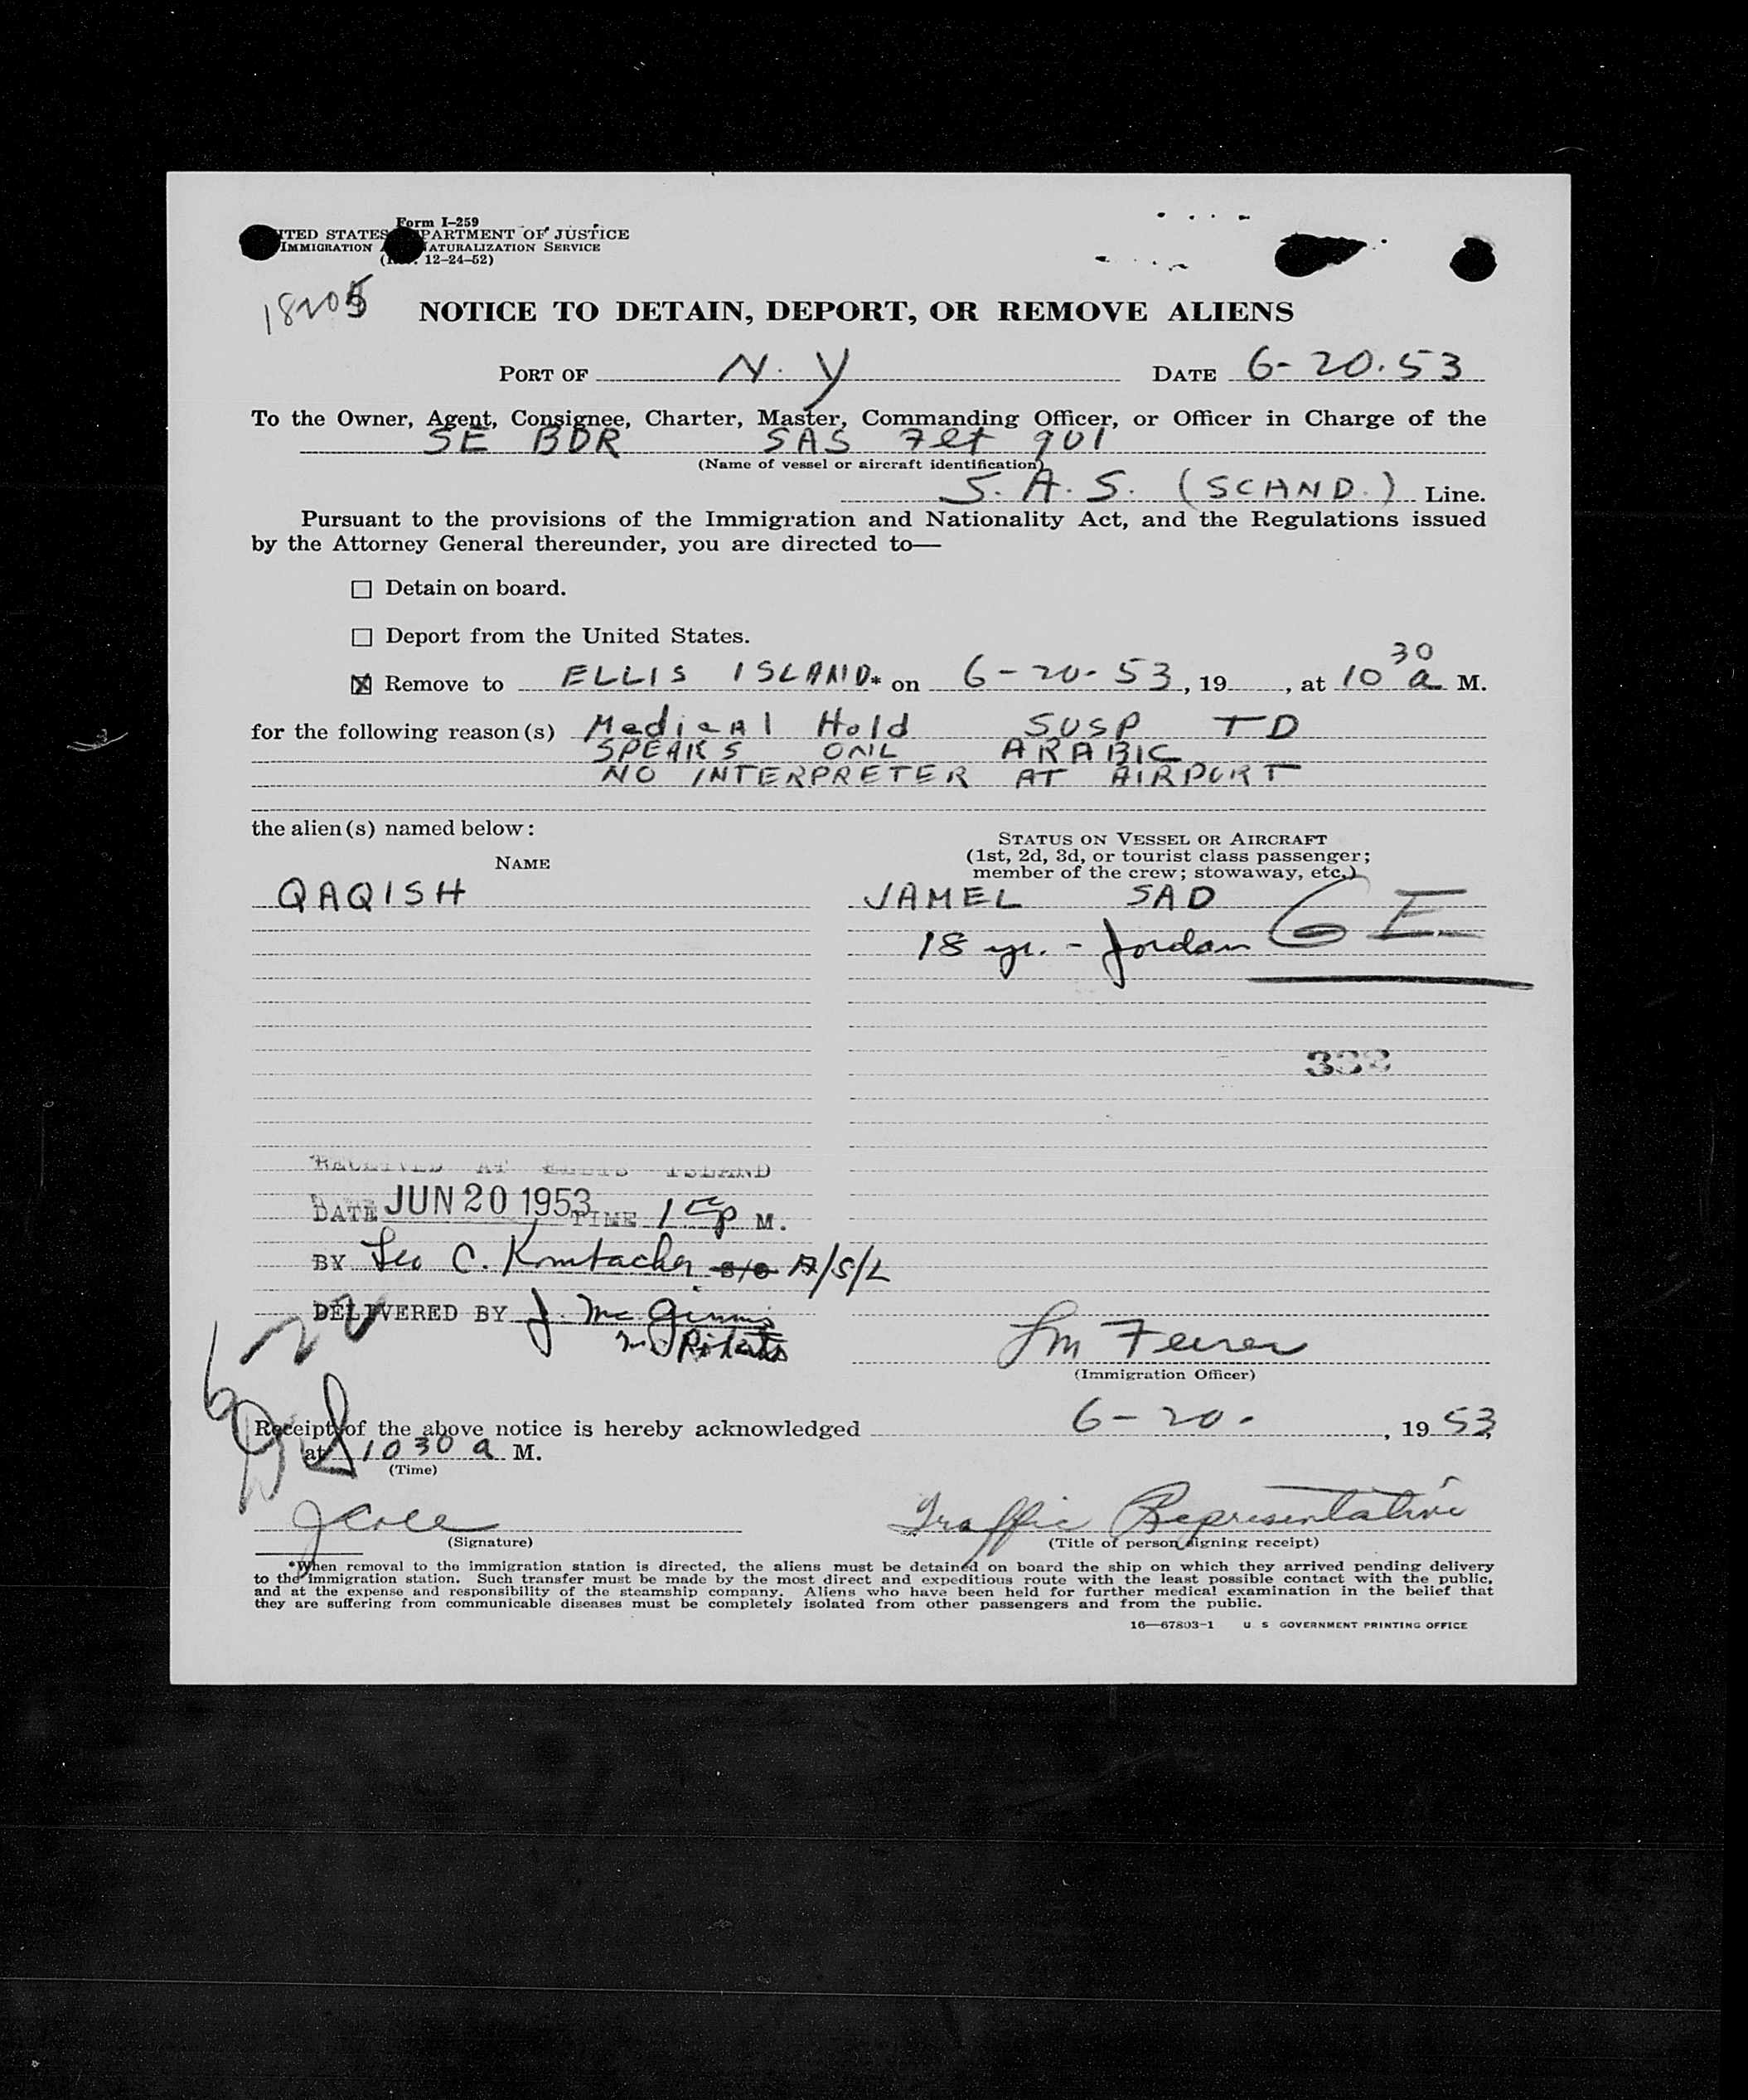 Form I-259
ITED STATES PARTMENT OF JUSTICE
IMMIGRATION ATURALIZATION SERVICE
12-24-52)
18205
NOTICE TO DETAIN, DEPORT, OR REMOVE ALIENS
PORT OF N. Y DATE 6-20.53
To the Owner, Agent, Consignee, Charter, Master, Commanding Officer, or Officer in Charge of the
SE BDR SAS 7lt 901
(Name of vessel or aircraft identification)
S. A. S. (SCAND.) Line.
Pursuant to the provisions of the Immigration and Nationality Act, and the Regulations issued
by the Attorney General thereunder, you are directed to—
☐ Detain on board.
☐ Deport from the United States.
☒ Remove to ELLIS ISLAND* on 6-20-53, 19, at 10 30 a M.
for the following reason(s) Medical Hold SUSP TD
SPEAKS ONL ARABIC
NO INTERPRETER AT AIRPORT
the alien(s) named below:
NAME
STATUS ON VESSEL OR AIRCRAFT
(1st, 2d, 3d, or tourist class passenger;
member of the crew; stowaway, etc.)
QAQISH JAMEL SAD
18 yr. - Jordan
333
RECEIVED AT ELLIS ISLAND
DATE JUN 20 1953 TIME 1 P M.
BY Leo C. A/S/L
DELIVERED BY J. McGinnis
Roberts
(Immigration Officer)
Receipt of the above notice is hereby acknowledged 6-20-, 1953,
at 10 30 a M.
(Time)
Traffic Representative
(Signature) (Title of person signing receipt)
*When removal to the immigration station is directed, the aliens must be detained on board the ship on which they arrived pending delivery
to the immigration station. Such transfer must be made by the most direct and expeditious route with the least possible contact with the public,
and at the expense and responsibility of the steamship company. Aliens who have been held for further medical examination in the belief that
they are suffering from communicable diseases must be completely isolated from other passengers and from the public.
16—67803-1 U S GOVERNMENT PRINTING OFFICE